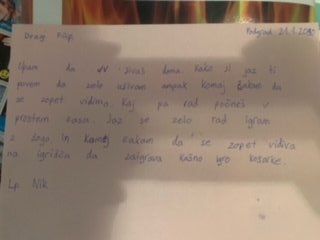 Dragi Filip, Podgrad 21.1.2010
Upam da uživaš doma. Kako si jaz ti
povem da zelo uživam ampak komaj čakam da
se zopet vidimo. Kaj pa rad počneš v
prostem času. Jaz se zelo rad igram
z žogo in komaj čakam da se zopet vidiva
na igrišču da zaigrava kašno igro košarke.
Lp Nik